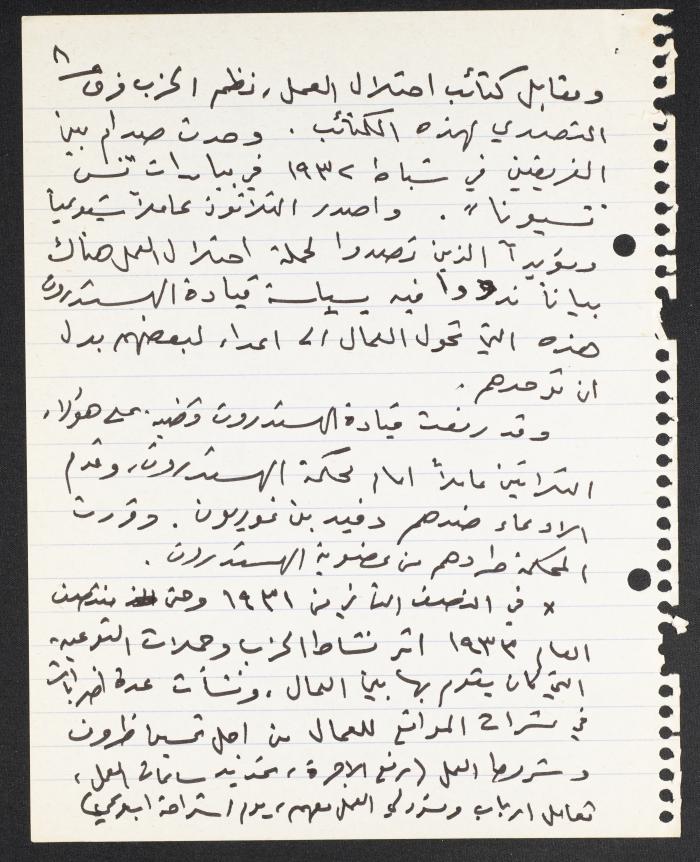 ٨
ومقابل كتائب احتلال العمل، نظم الحزب فرق
التصدي لهذه الكتائب. وحدث صدام بين
الفريقين في شباط ١٩٣٢ في بيارات "نس
تسيونا". واصدر الثلاثون عاملاً شيوعياً
ومؤيداً الذين تصدوا لحملة احتلال العمل هناك
بياناً نددوا فيه بسياسة قيادة الهستدروت
هذه التي تحول العمال الى اعداء لبعضهم بدل
ان توحدهم.
وقد رفعت قيادة الهستدروت قضية على هؤلاء
الثلاثين عاملاً امام محكمة الهستدروت، وقدم
الادعاء ضدهم دفيد بن غوريون. وقررت
المحكمة طردهم من عضوية الهستدروت.
× في النصف الثاني من ١٩٣١ وحتى منتصف
العام ١٩٣٣ اثر نشاط الحزب وحملات التوعية
التي كان يقوم بها بين العمال، ونشأت عدة اضرابات
في عشرات المواقع للعمال من اجل تحسين ظروف
وشروط العمل (رفع الاجرة، تحديد ساعات العمل،
تعامل ارباب العمل معهم، يوم استراحة اسبوعي)